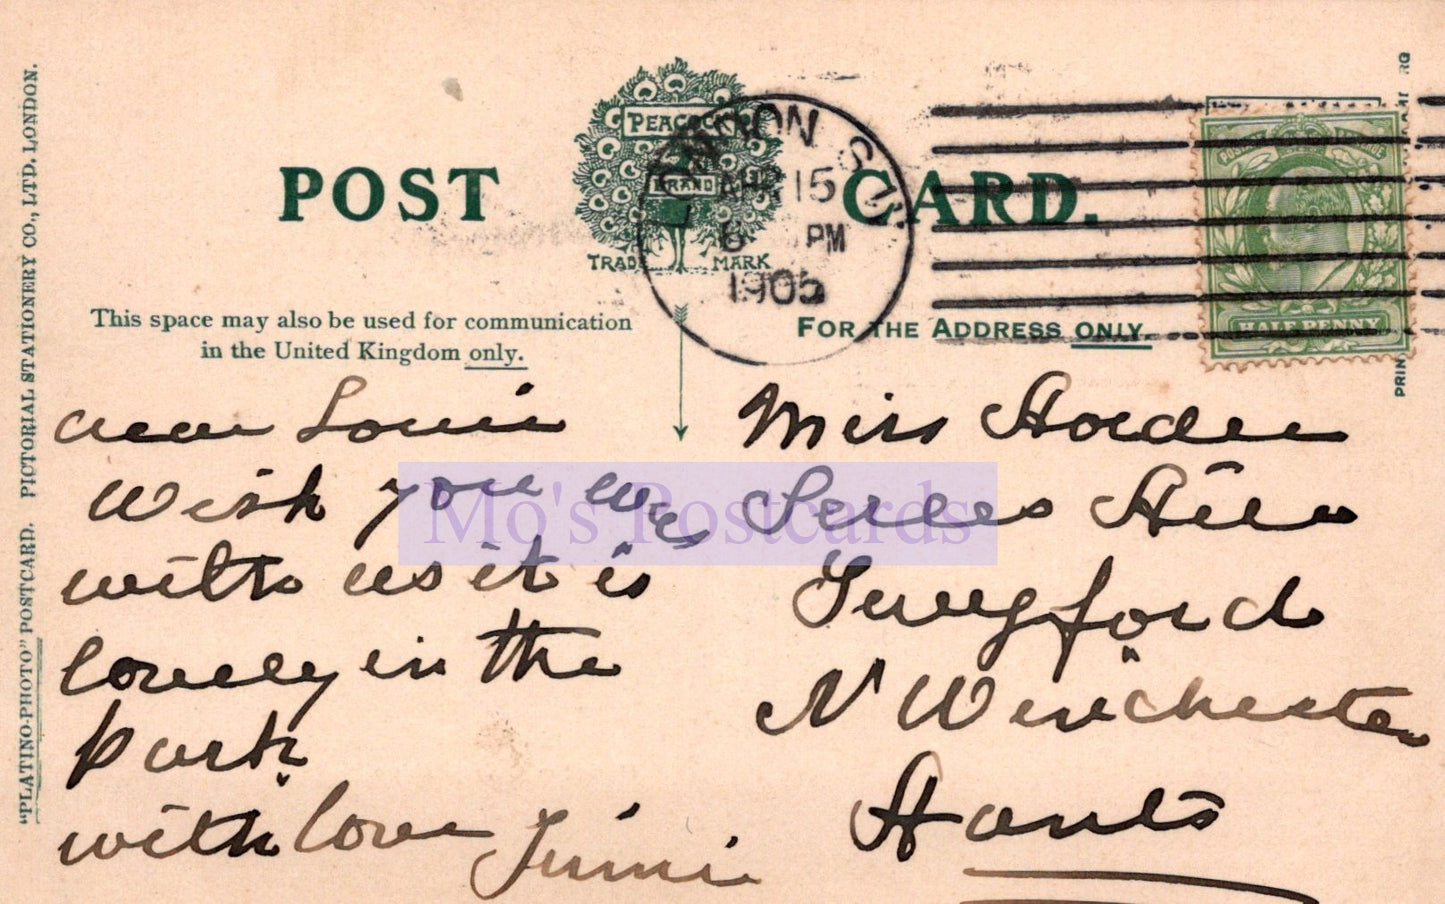 POST CARD.
PEACOCK
BRAND
TRADE MARK
LONDON S.W.
APR 15
8 PM
1905
HALF PENNY
This space may also be used for communication
in the United Kingdom only.
FOR THE ADDRESS ONLY.
"PLATINO-PHOTO" POSTCARD. PICTORIAL STATIONERY CO., LTD. LONDON.
Dear Louie
Wish you were
with us it is
lovely in the
park
with love Jimmi
Miss Holder
Serles Hill
Twyford
N Winchester
Hants
Mo's Postcards
PRIN
RG